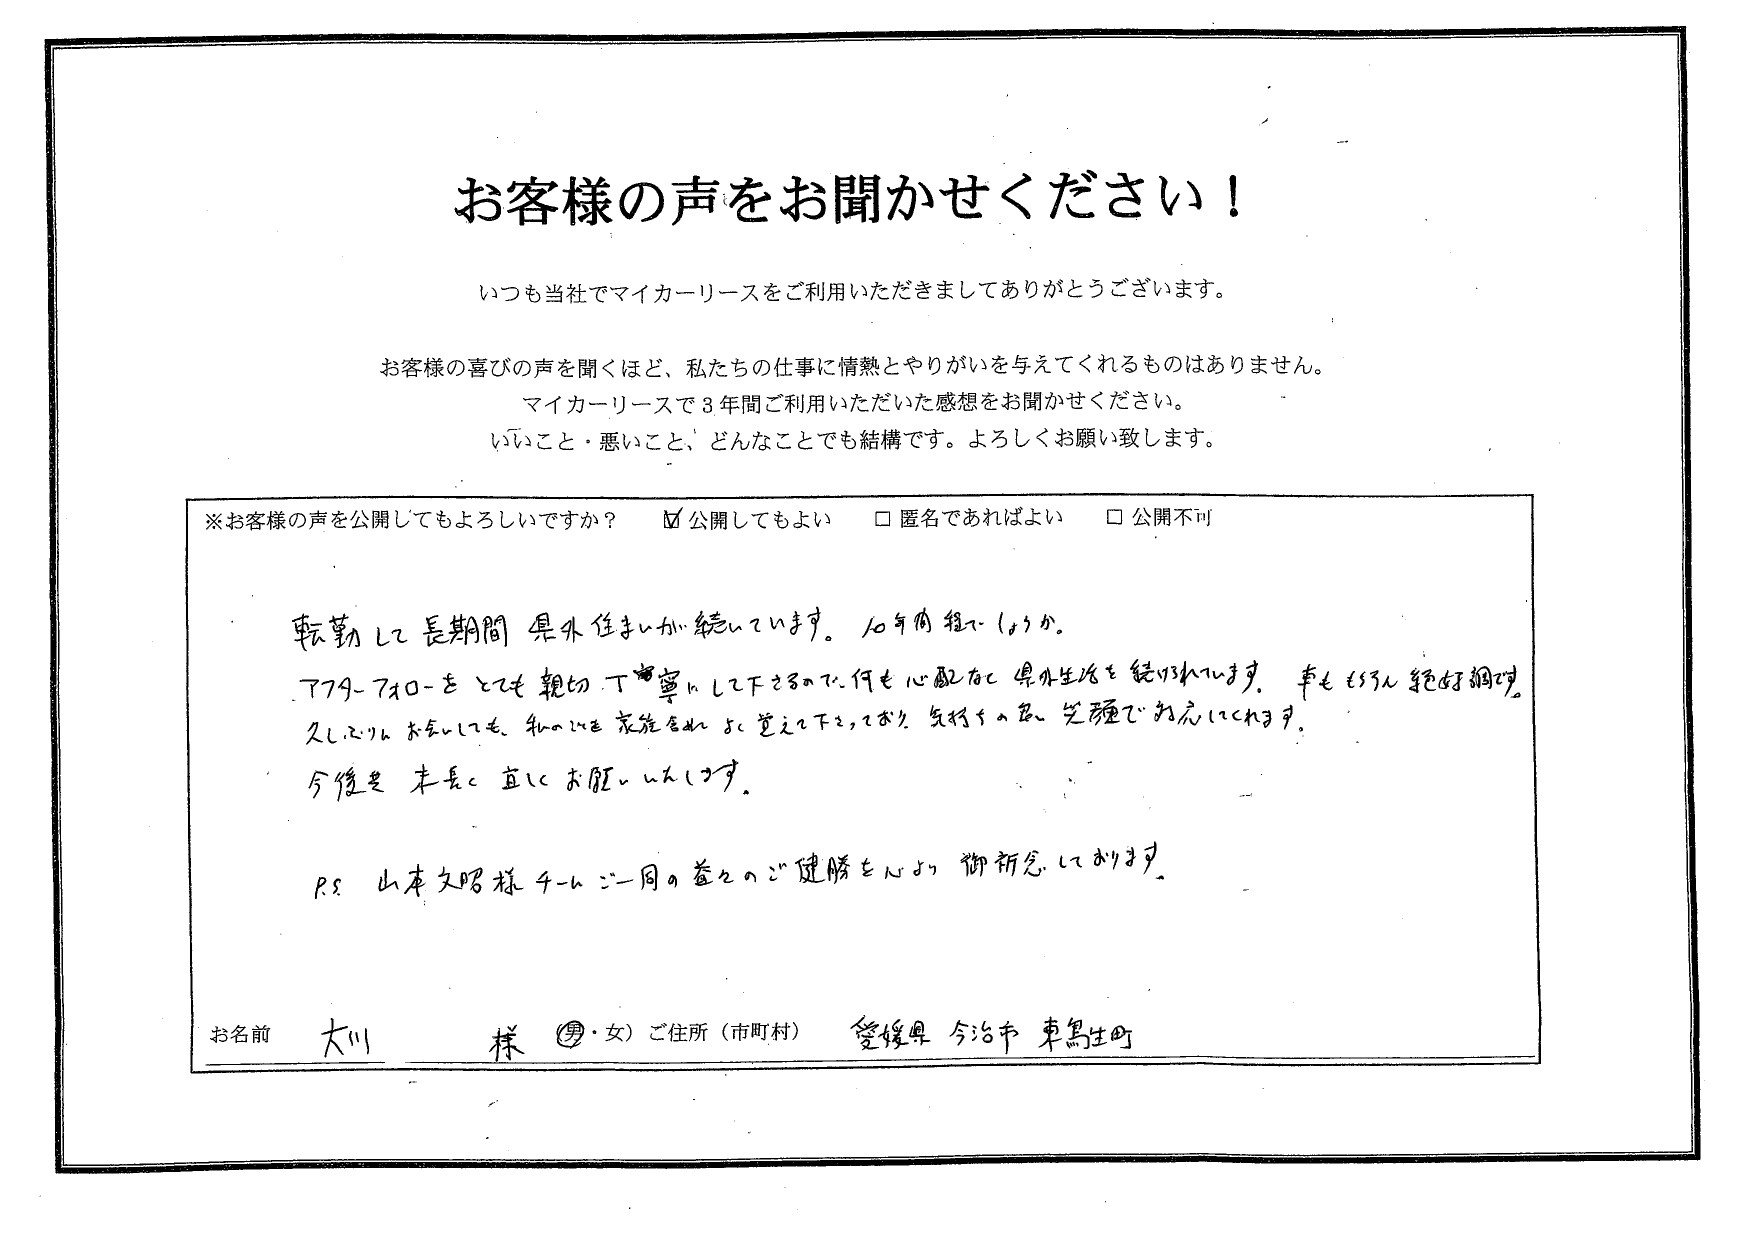 お客様の声をお聞かせください！
いつも当社でマイカーリースをご利用いただきましてありがとうございます。
お客様の喜びの声を聞くほど、私たちの仕事に情熱とやりがいを与えてくれるものはありません。
マイカーリースで３年間ご利用いただいた感想をお聞かせください。
いいこと・悪いこと、どんなことでも結構です。よろしくお願い致します。
※お客様の声を公開してもよろしいですか？ ☑公開してもよい □匿名であればよい □公開不可
転勤して長期間 県外住まいが続いています。10年間程でしょうか。
アフターフォローをとても親切丁寧にして下さるので、何も心配なく県外生活を続けられています。車ももちろん絶好調です。
久しぶりにお会いしても、私のことを家族含めよく覚えて下さっており、気持ちの良い笑顔で対応してくれます。
今後共 末長く 宜しくお願いいたします。
P.S. 山本文昭様チームご一同の益々のご健勝を心より御祈念しております。
お名前 大川 様 (男・女) ご住所（市町村） 愛媛県 今治市 東鳥生町